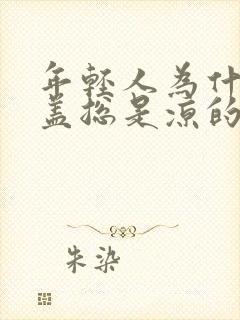 年轻人为什
盖总是凉的
朱染